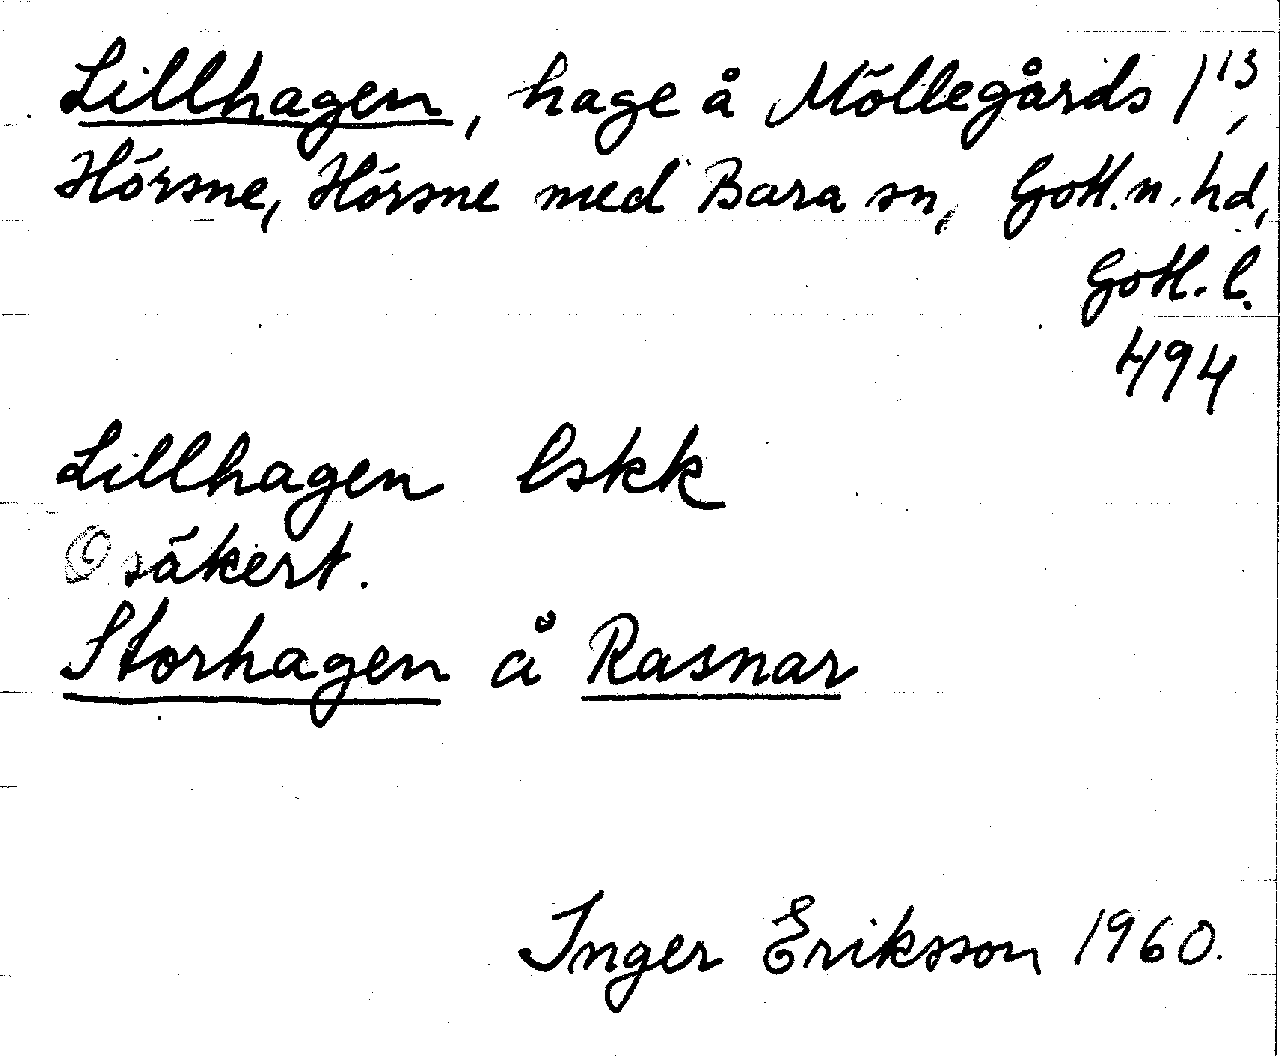 Lillhagen, hage å Möllegårds 1¹³,
Hörsne, Hörsne med Bara sn, Gotl.n.hd,
Gotl. l.
494
Lillhagen lskk
Osäkert.
Storhagen å Rasnar
Inger Eriksson 1960.